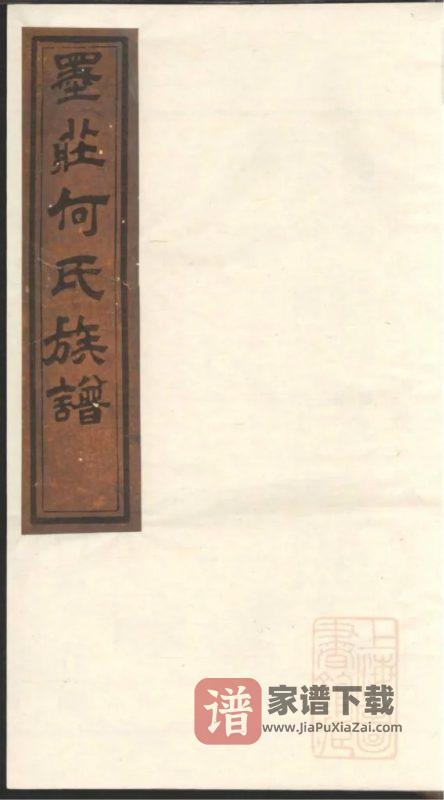 墨莊何氏族譜
上海圖
書館藏
谱 家谱下载
www.JiaPuXiaZai.com